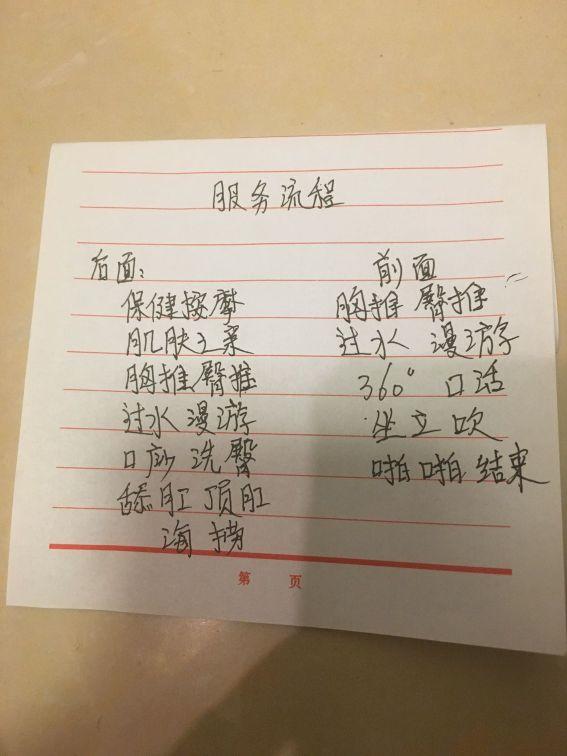 服务流程
后面：
保健按摩
肌肤之亲
胸推臀推
过水漫游
口爱洗臀
舔肛顶肛
海捞
前面
胸推 臀推
过水 漫游
360° 口活
坐立吹
啪啪结束
第 页